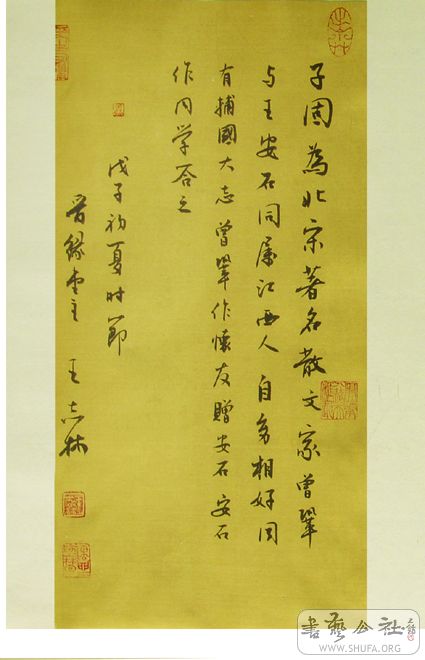 子固為北宋著名散文家曾鞏
与王安石同属江西人自多相好同
有捕國大志曾鞏作懷友贈安石安石
作同学答之
戊子初夏时節
晋缘堂主 王志林
書藝公社
WWW.SHUFA.ORG